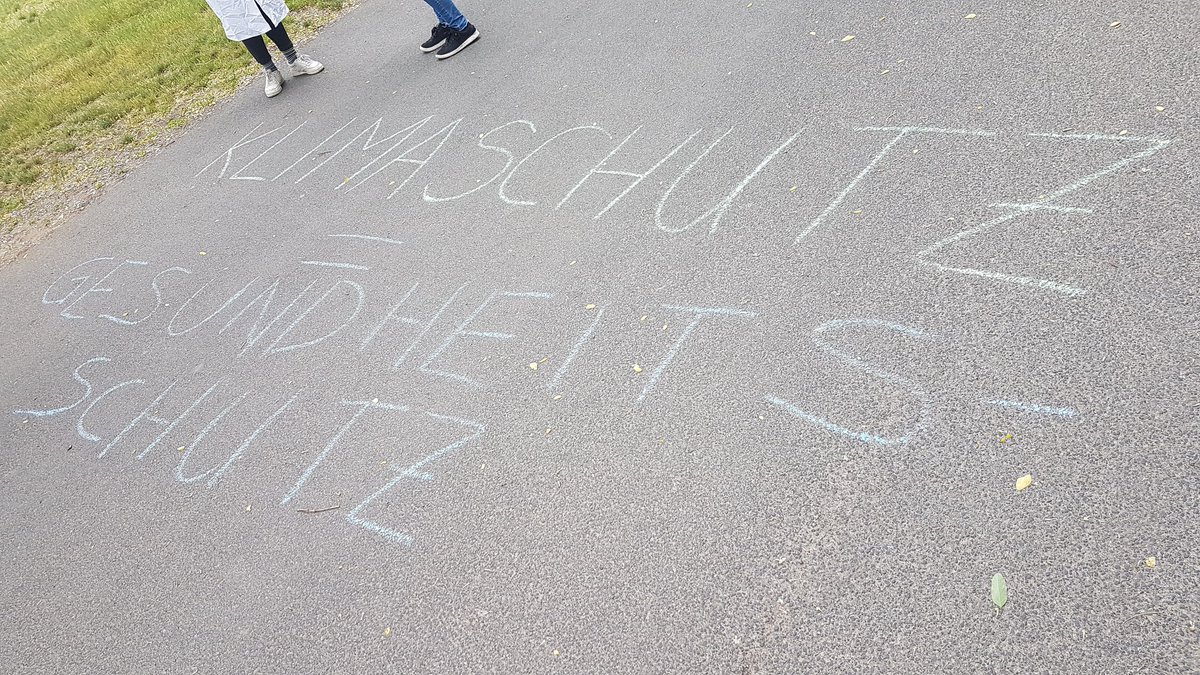 KLIMASCHUTZ
=
GESUNDHEITS-
SCHUTZ